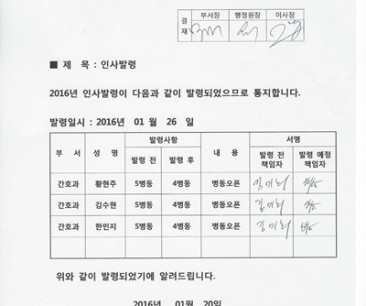 결재 부서장 행정원장 이사장
■ 제 목 : 인사발령
2016년 인사발령이 다음과 같이 발령되었으므로 통지합니다.
발령일시 : 2016년 01 월 26 일
부 서 성 명 발령사항 내 용 서명
발령 전 발령 후 발령 전 책임자 발령 예정 책임자
간호과 황현주 5병동 4병동 병동오픈
간호과 김수현 5병동 4병동 병동오픈
간호과 한민지 5병동 4병동 병동오픈
위와 같이 발령되었기에 알려드립니다.
2016년 01월 20일